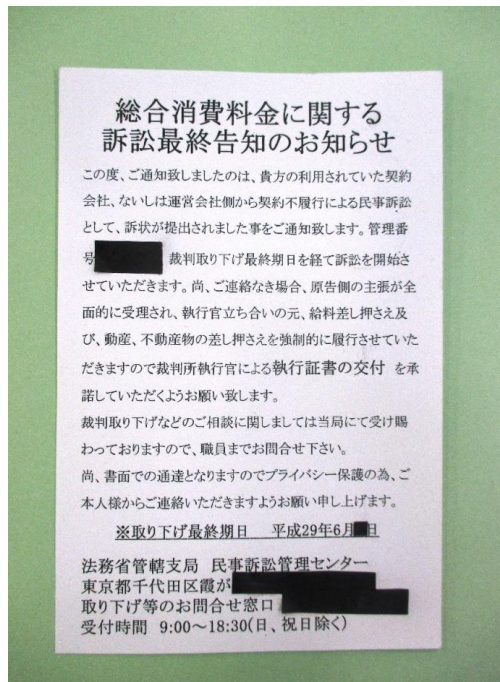 総合消費料金に関する
訴訟最終告知のお知らせ
この度、ご通知致しましたのは、貴方の利用されていた契約
会社、ないしは運営会社側から契約不履行による民事訴訟
として、訴状が提出されました事をご通知致します。管理番
号 裁判取り下げ最終期日を経て訴訟を開始さ
せていただきます。尚、ご連絡なき場合、原告側の主張が全
面的に受理され、執行官立ち合いの元、給料差し押さえ及
び、動産、不動産物の差し押さえを強制的に履行させていた
だきますので裁判所執行官による執行証書の交付 を承
諾していただくようお願い致します。
裁判取り下げなどのご相談に関しましては当局にて受け賜
わっておりますので、職員までお問合せ下さい。
尚、書面での通達となりますのでプライバシー保護の為、ご
本人様からご連絡いただきますようお願い申し上げます。
※取り下げ最終期日 平成29年6月 日
法務省管轄支局 民事訴訟管理センター
東京都千代田区霞が
取り下げ等のお問合せ窓口
受付時間 9:00～18:30(日、祝日除く)